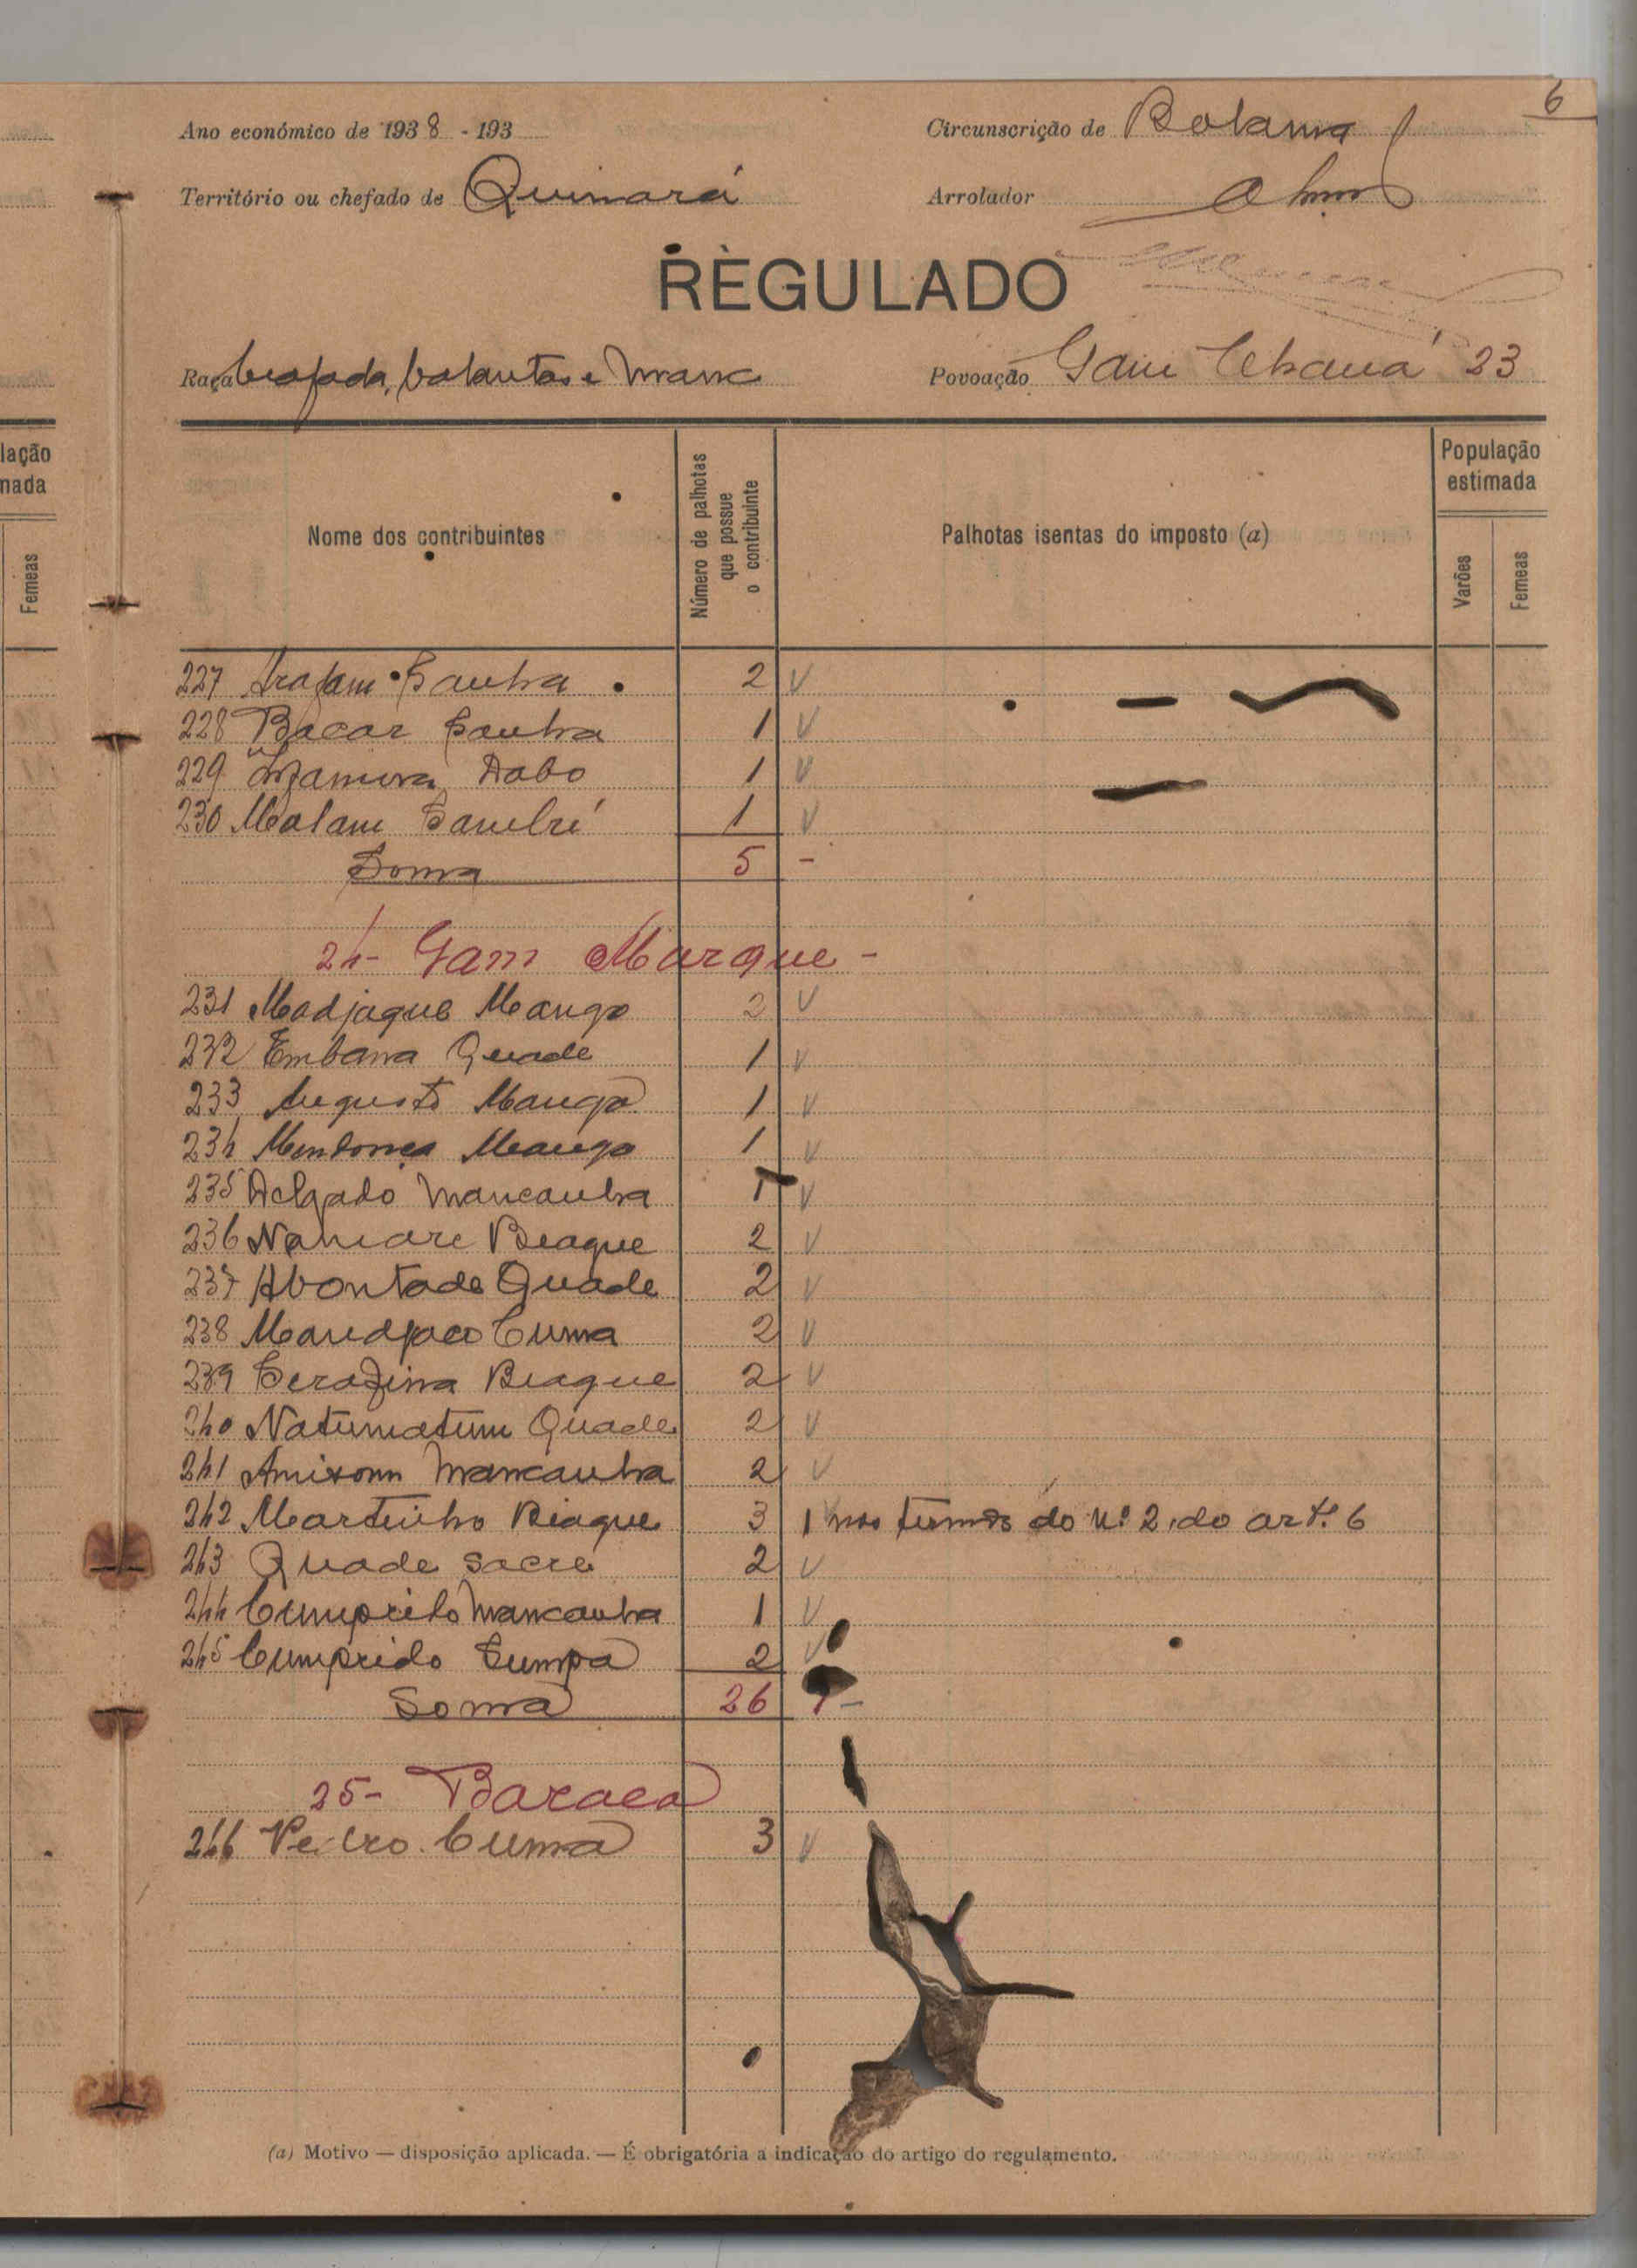 6
Ano económico de 1938 - 193
Circunscrição de Bolama
Território ou chefado de Quinará
Arrolador
REGULADO
Raça beafada, balantas e manc
Povoação Gam Chauá 23
Nome dos contribuintes
Número de palhotas que possue o contribuinte
Palhotas isentas do imposto (a)
População estimada
Varões
Femeas
lação
mada
Femeas
227 Arafam Sanha 2 V
228 Bacar Sanha 1 V
229 Dabo 1 V
230 Malam Sambú 1 V
Soma 5 -
24- Gam Marque -
231 Madjaque Mango 2 V
232 Embana Quade 1 V
233 Augusto Mango 1 V
234 Mendonça Mango 1 V
235 Delgado Mancanha 1 V
236 Beaque 2 V
237 Abontade Quade 2 V
238 Mandjaco Cuma 2 V
239 Serafina Biaque 2 V
240 Natumatum Quade 2 V
241 Mancanha 2 V
242 Martinho Biague 3 1 nos termos do nº 2 do artº 6
243 Quade Sacré 2 V
244 Cumprido Mancanha 1 V
245 Cumprido Sumpa 2 V
Soma 26 1 -
25- Baraca
246 Pedro Cuma 3 V
(a) Motivo — disposição aplicada. — É obrigatória a indicação do artigo do regulamento.